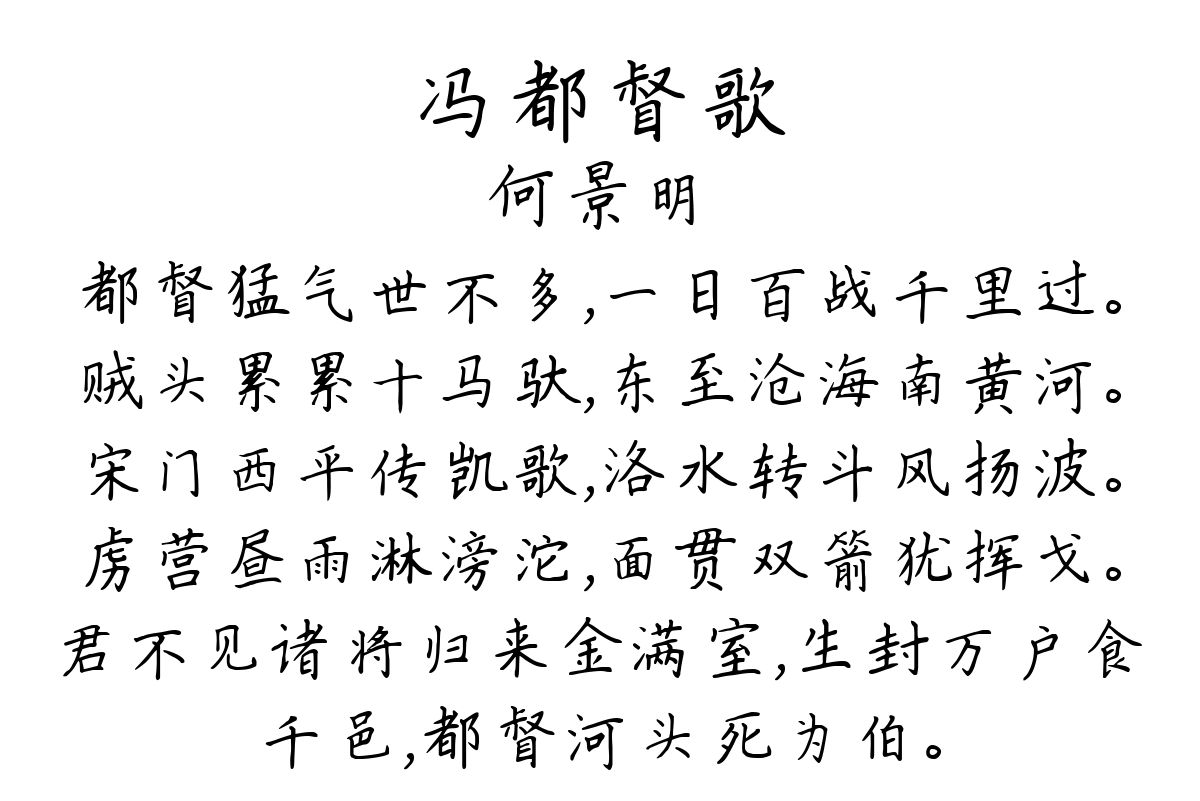 冯都督歌
何景明
都督猛气世不多,一日百战千里过。
贼头累累十马驮,东至沧海南黄河。
宋门西平传凯歌,洛水转斗风扬波。
虏营昼雨淋滂沱,面贯双箭犹挥戈。
君不见诸将归来金满室,生封万户食
千邑,都督河头死为伯。